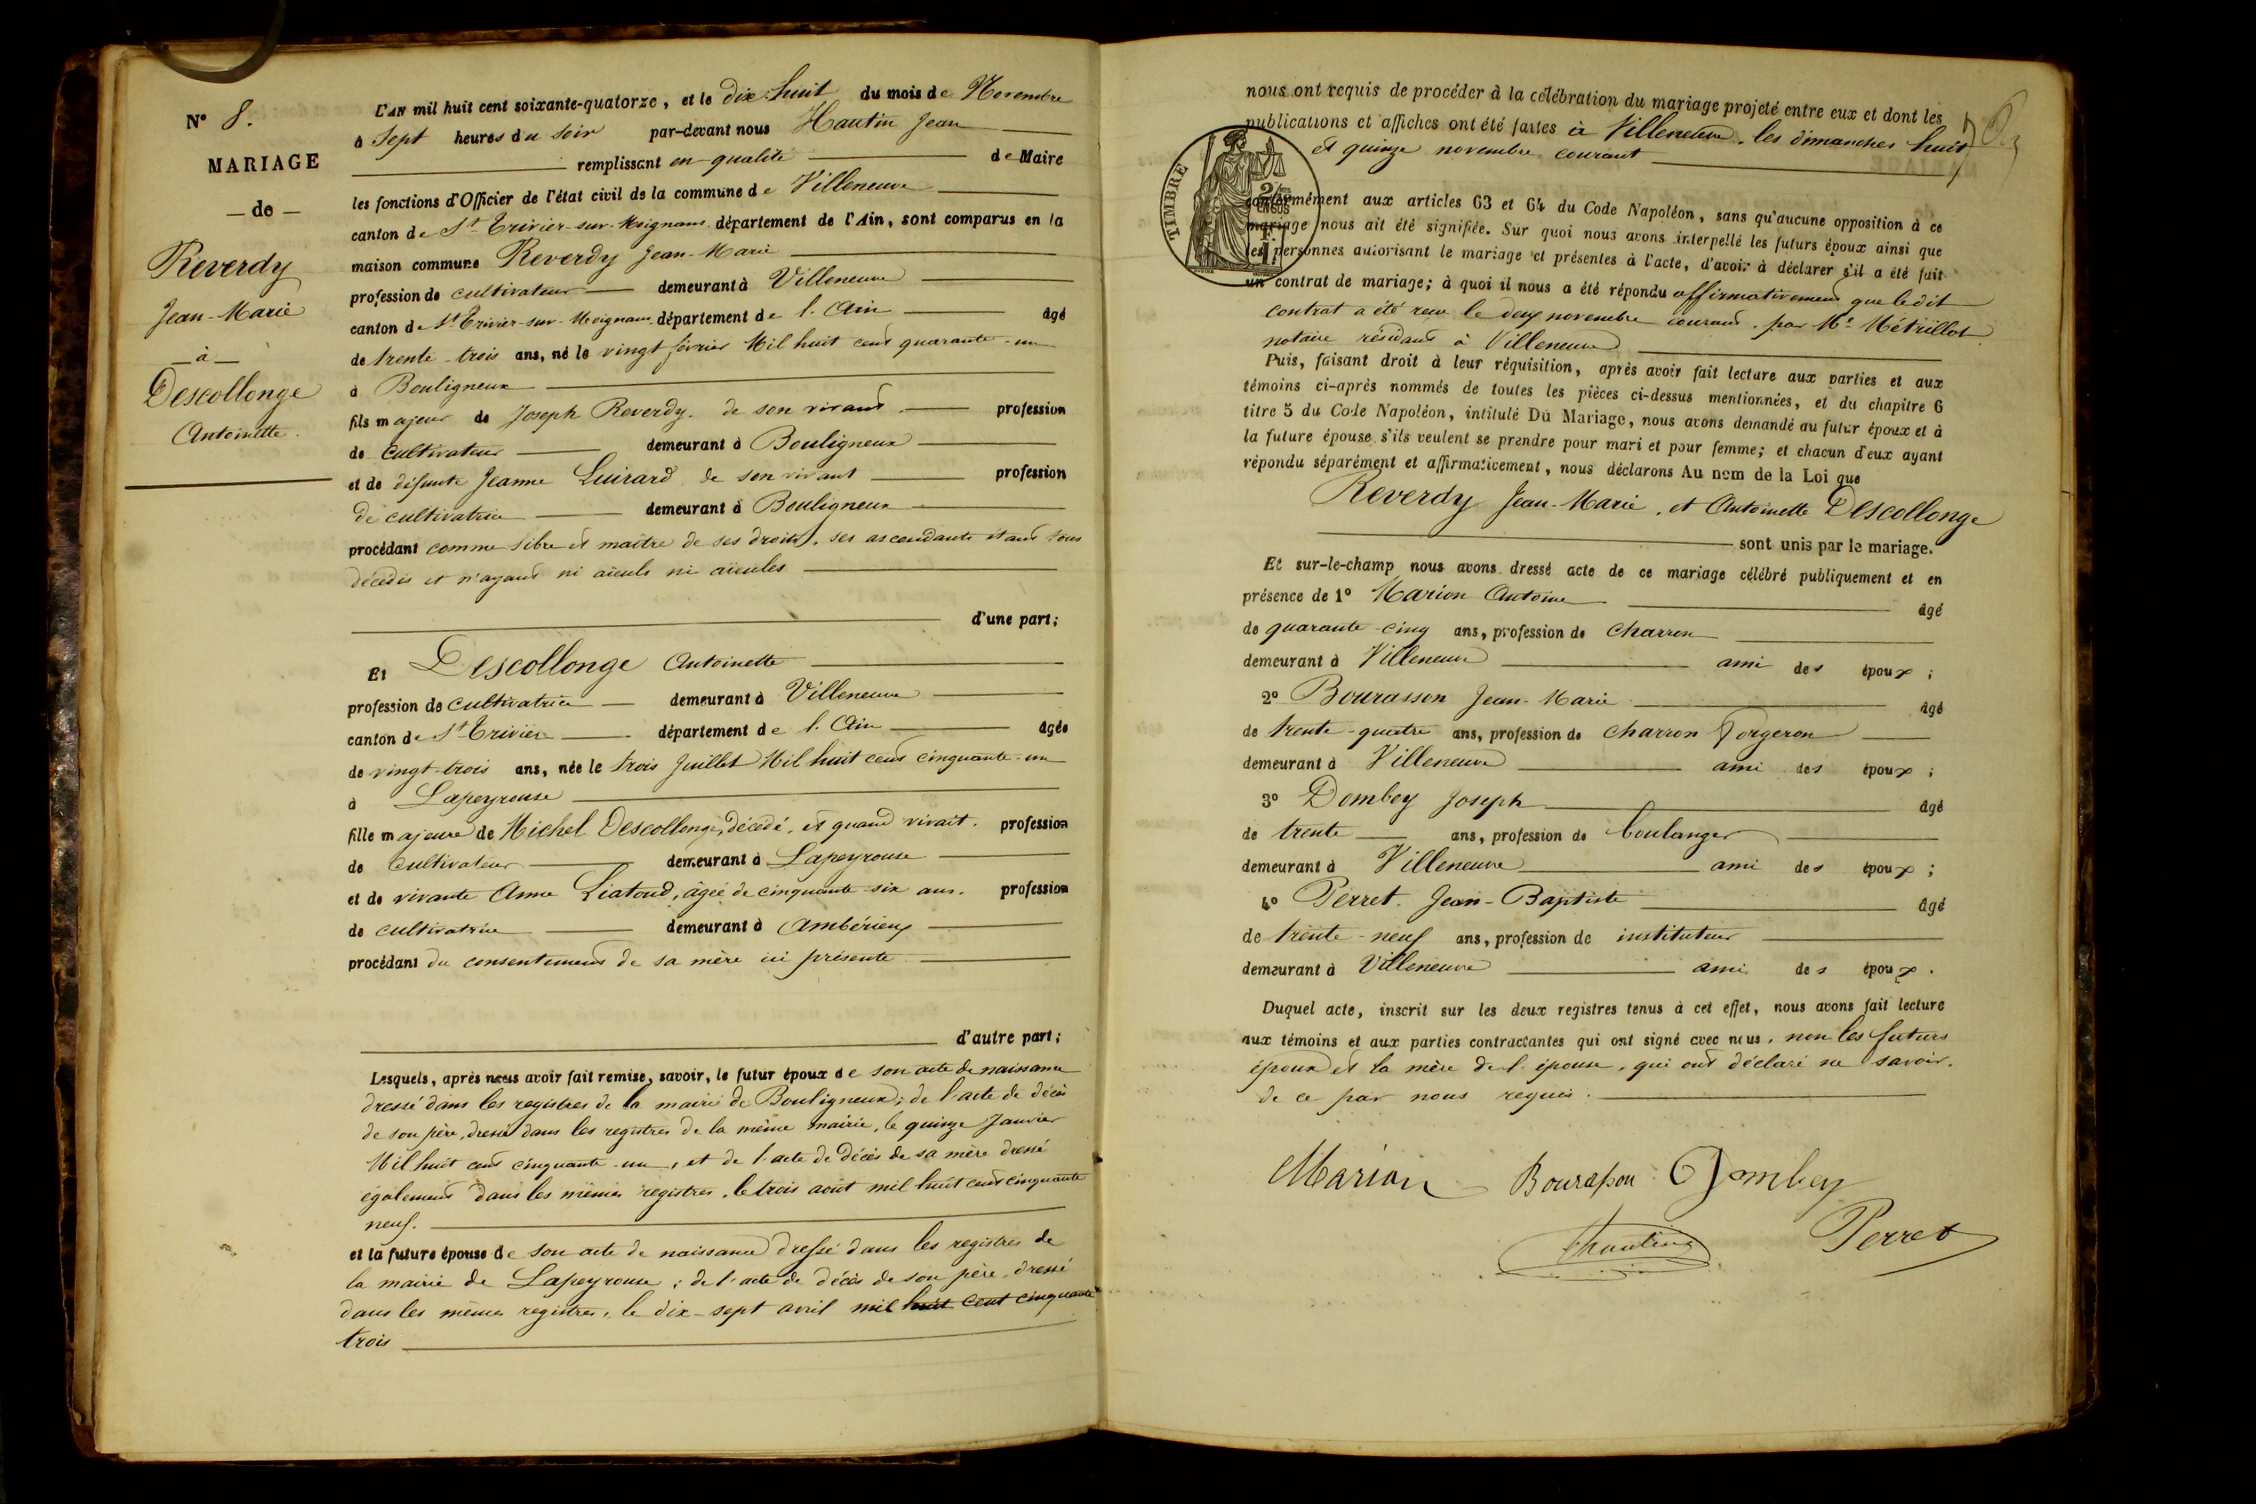 N° 8.
MARIAGE
— de —
Reverdy
Jean-Marie
— à —
Descollonge
Antoinette.
L'AN mil huit cent soixante-quatorze, et le dix-huit du mois de Novembre
à Sept heures du soir par-devant nous Hautin Jean
remplissant en qualité de Maire
les fonctions d'Officier de l'état civil de la commune de Villeneuve
canton de St Trivier-sur-Moignans département de l'Ain, sont comparus en la
maison commune Reverdy Jean-Marie
profession de cultivateur demeurant à Villeneuve
canton de St Trivier-sur-Moignans département de l'Ain âgé
de trente-trois ans, né le vingt février Mil huit cent quarante-un
à Bouligneux
fils majeur de Joseph Reverdy. de son vivant profession
de cultivateur demeurant à Bouligneux
et de défunte Jeanne Luirard de son vivant profession
de cultivatrice demeurant à Bouligneux
procédant comme libre et maître de ses droits, ses ascendants étant tous
décédés et n'ayant ni aïeuls ni aïeules
d'une part;
Et Descollonge Antoinette
profession de cultivatrice demeurant à Villeneuve
canton de St Trivier département de l'Ain âgée
de vingt-trois ans, née le trois Juillet Mil huit cent cinquante-un
à Lapeyrouse
fille majeure de Michel Descollonge, décédé, et quand vivait. profession
de Cultivateur demeurant à Lapeyrouse
et de vivante Anne Liatoud, âgée de cinquante-six ans. profession
de cultivatrice demeurant à Ambérieux
procédant du consentement de sa mère ici présente
d'autre part;
Lesquels, après nous avoir fait remise, savoir, le futur époux de son acte de naissance
dressé dans les registres de la mairie de Bouligneux; de l'acte de décès
de son père, dressé dans les registres de la même mairie, le quinze Janvier
Mil huit cent cinquante-un, et de l'acte de décès de sa mère dressé
également dans les mêmes registres, le trois août mil huit cent cinquante
neuf.
et la future épouse de son acte de naissance dressé dans les registres de
la mairie de Lapeyrouse; de l'acte de décès de son père, dressé
dans les mêmes registres, le dix-sept avril mil huit cent cinquante
trois
nous ont requis de procéder à la célébration du mariage projeté entre eux et dont les
publications et affiches ont été faites à Villeneuve, les dimanches huit
et quinze novembre courant
TIMBRE
conformément aux articles 63 et 64 du Code Napoléon, sans qu'aucune opposition à ce
mariage nous ait été signifiée. Sur quoi nous avons interpellé les futurs époux ainsi que
les personnes autorisant le mariage et présentes à l'acte, d'avoir à déclarer s'il a été fait
un contrat de mariage; à quoi il nous a été répondu affirmativement que ledit
contrat a été reçu le deux novembre courant. par Me Métrillot
notaire résidant à Villeneuve
Puis, faisant droit à leur réquisition, après avoir fait lecture aux parties et aux
témoins ci-après nommés de toutes les pièces ci-dessus mentionnées, et du chapitre 6
titre 5 du Code Napoléon, intitulé Du Mariage, nous avons demandé au futur époux et à
la future épouse s'ils veulent se prendre pour mari et pour femme; et chacun d'eux ayant
répondu séparément et affirmativement, nous déclarons Au nom de la Loi que
Reverdy Jean-Marie, et Antoinette Descollonge
sont unis par le mariage.
Et sur-le-champ nous avons dressé acte de ce mariage célébré publiquement et en
présence de 1° Marion Antoine âgé
de quarante-cinq ans, profession de charron
demeurant à Villeneuve ami des époux;
2° Bourasson Jean-Marie âgé
de trente-quatre ans, profession de charron forgeron
demeurant à Villeneuve ami des époux;
3° Dombey Joseph âgé
de trente ans, profession de boulanger
demeurant à Villeneuve ami des époux;
4° Perret Jean-Baptiste âgé
de trente-neuf ans, profession de instituteur
demeurant à Villeneuve ami des époux.
Duquel acte, inscrit sur les deux registres tenus à cet effet, nous avons fait lecture
aux témoins et aux parties contractantes qui ont signé avec nous, non les futurs
époux et la mère de l'épouse, qui ont déclaré ne savoir.
de ce par nous requis.
Marion Bourasson Dombey
Hautin Perret